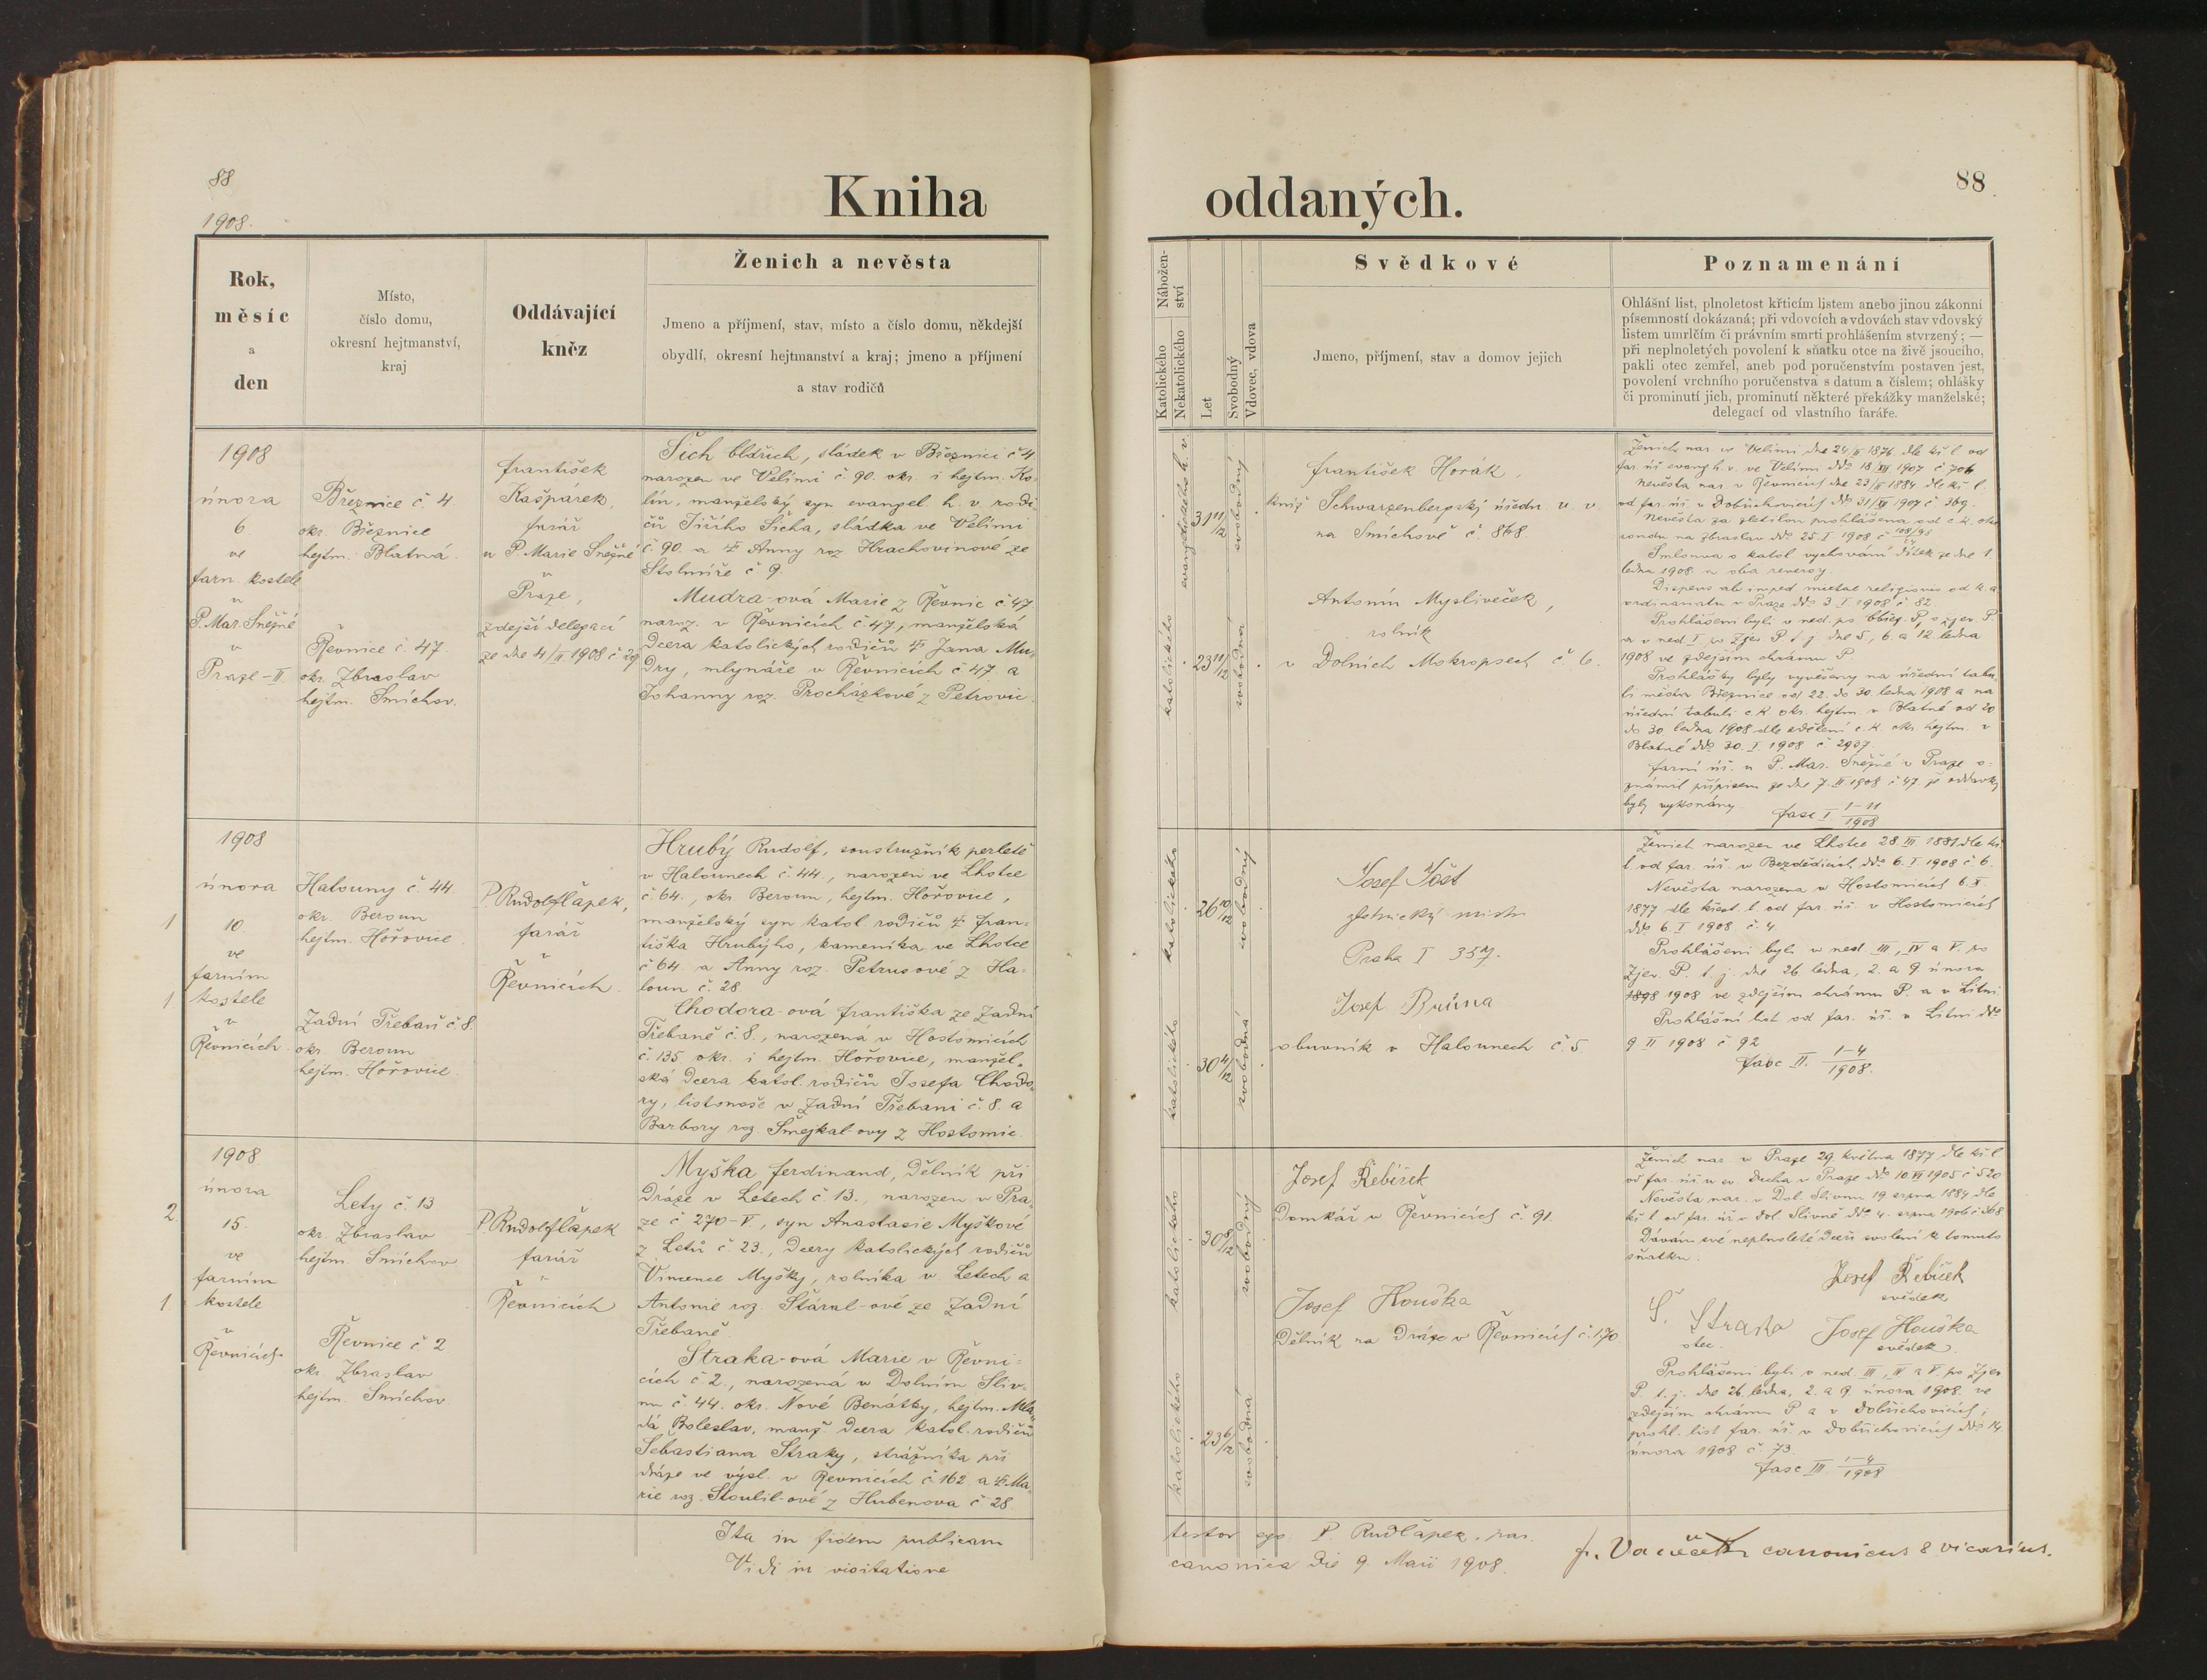 88
1908.
Kniha
oddaných.
88
Rok,
měsíc
a
den
Místo,
číslo domu,
okresní hejtmanství,
kraj
Oddávající
kněz
Ženich a nevěsta
Jmeno a příjmení, stav, místo a číslo domu, někdejší
obydlí, okresní hejtmanství a kraj; jmeno a příjmení
a stav rodičů
Nábožen-
ství
Katolického
Nekatolického
Let
Svobodný
Vdovec, vdova
Svědkové
Jmeno, příjmení, stav a domov jejich
Poznamenání
Ohlášní list, plnoletost křticím listem anebo jinou zákonní
písemností dokázaná; při vdovcích a vdovách stav vdovský
listem umrlčím či právním smrti prohlášením stvrzený; —
při neplnoletých povolení k sňatku otce na živě jsoucího,
pakli otec zemřel, aneb pod poručenstvím postaven jest,
povolení vrchního poručenstva s datum a číslem; ohlášky
či prominutí jich, prominutí některé překážky manželské;
delegací od vlastního faráře.
1908
února
6
ve
farn. kostele
u
P. Mar. Sněžné
v
Praze-II
Březnice č. 4
okr. Březnice
hejtm. Blatná.
Řevnice č. 47.
okr. Zbraslav
hejtm. Smíchov.
František
Kašpárek,
farář
u P. Marie Sněžné
v
Praze,
zdejší delegací
ze dne 4/II 1908 č 29
Šich Oldřich, sládek v Březnici č 4
narozen ve Velimi č. 90. okr. i hejtm. Ko-
lín, manželský syn evangel. h. v. rodi-
čů Jiřího Šicha, sládka ve Velimi
č. 90. a Anny roz Hrachovinové ze
Stolmíře č 9.
Mudra-ová Marie z Řevnic č 47.
naroz. v Řevnicích č. 47., manželská
dcera katolických rodičů Jana Mu-
dry, mlynáře v Řevnicích č 47. a
Johanny roz. Procházkové z Petrovic.
evangelického h. v.
31 11/12
svobodný
katolického
23 11/12
svobodná
František Horák,
kníž Schwarzenbergský úředn. v. v.
na Smíchově č. 868.
Antonín Mysliveček,
rolník
v Dolních Mokropsech č. 6.
Ženich nar. ve Velimi dne 24/II 1876 dle kř l. od
far. úř evang h. v. ve Velimi ddo 18/XII 1907 č 706
Nevěsta nar. v Řevnicích dne 23/II 1884 dle kř. l.
od far. úř. v Dobřichovicích ddo 31/XII 1907 č. 369.
Nevěsta za zletilou prohlášena od c. k. okr.
soudu na Zbraslav ddo 25. I 1908 č
Smlouva o katol vychování dítek ze dne 1.
ledna 1908 a oba reversy.
Dispens ab imped. mixtae religionis od k. a.
ordinariatu v Praze ddo 3 I 1908 č 82
Prohlášeni byli v ned. po Obřez. P., Zjev. P.
a v ned. I. po Zjev P t. j. dne 5., 6. a 12. ledna
1908 ve zdejším chrámu P.
Prohlášky byly vyvěšeny na úřední tabu-
li města Březnice od 22. do 30. ledna 1908 a na
úřední tabuli c. k. okr. hejtm. v Blatné od 20
do 30. ledna 1908 dle sdělení c. k. okr. hejtm. v
Blatné ddo 30. I. 1908 č 2937.
Farní úř. u P. Mar. Sněžné v Praze o-
známil přípisem ze dne 7. II. 1908 č 47 že oddavky
byly vykonány.
fasc I 1-11/1908
1908
února
1
10
ve
farním
1
kostele
v
Řevnicích.
Halouny č. 44.
okr. Beroun
hejtm. Hořovice.
Zadní Třebaň č 8.
okr. Beroun
hejtm. Hořovice.
P. Rudolf Čapek,
farář
v
Řevnicích.
Hrubý Rudolf, soustružník perletě
v Halounech č. 44., narozen ve Lhotce
č. 64., okr Beroun, hejtm. Hořovice,
manželský syn katol rodičů Fran-
tiška Hrubýho, kameníka ve Lhotce
č 64 a Anny roz. Petrusové z Ha-
loun č. 28
Chodora-ová Františka ze Zadní
Třebaně č. 8., narozená v Hostomicích
č. 135 okr. i hejtm. Hořovice, manžel-
ská dcera katol. rodičů Josefa Chodo-
ry, listonoše v Zadní Třebani č. 8. a
Barbory roz. Smejkal-ovy z Hostomic.
katolického
26 10/12
svobodný
katolického
30 4/12
svobodná
Josef Jošt
zlatnický mistr
Praha I 357.
Josef Brůna
obuvník v Halounech č. 5
Ženich narozen ve Lhotce 28 III 1881 dle kř.
l. od far. úř. v Bezdědicích ddo 6. I 1908 č 6.
Nevěsta narozena v Hostomicích 6. X.
1877 dle křest. l. od far. úř. v Hostomicích
ddo 6. I 1908 č. 4
Prohlášeni byli v ned. III, IV a V. po
Zjev. P. t. j. dne 26 ledna, 2. a 9 února
1898 1908 ve zdejším chrámu P. a v Litni
Prohlášní list od far. úř. v Litni ddo
9 II 1908 č 92
fasc II. 1-4/1908.
1908
února
2
15.
ve
farním
1
kostele
v
Řevnicích
Lety č. 13
okr. Zbraslav
hejtm. Smíchov
Řevnice č 2
okr. Zbraslav
hejtm. Smíchov
P. Rudolf Čapek
farář
v
Řevnicích
Myška Ferdinand, dělník při
dráze v Letech č 13., narozen v Pra-
ze č 270-V., syn Anastasie Myškové
z Letů č. 23., dcery katolických rodičů
Vincence Myšky, rolníka v Letech a
Antonie roz. Štáral-ové ze Zadní
Třebaně.
Straka-ová Marie v Řevni-
cích č 2., narozená v Dolním Sliv-
nu č. 44. okr. Nové Benátky, hejtm. Mla-
dá Boleslav, manž dcera katol. rodičů
Sebastiana Straky, strážníka při
dráze ve výsl. v Řevnicích č. 162 a Ma-
rie roz. Stoulil-ové z Hubenova č 28
katolického
30 8/12
svobodný
katolického
23 6/12
svobodná
Josef Řebíček
Domkář v Řevnicích č. 91.
Josef Houška
Dělník na dráze v Řevnicích č. 170
Ženich nar. v Praze 29 května 1877 dle kř l
od far. úř u sv. Ducha v Praze ddo 10 VI 1905 č 520
Nevěsta nar. v Dol. Slivnu 19 srpna 1884 dle
kř l. od far. úř v Dol. Slivně ddo 4. srpna 1906 č 368
Dávám své neplnoleté dceři svolení k tomuto
sňatku.
Josef Řebíček
svědek
Š. Straka
otec.
Josef Houška
svědek.
Prohlášeni byli v ned. III, IV a V. po Zjev
P. t. j. dne 26. ledna, 2. a 9. února 1908. ve
zdejším chrámu P a v Dobřichovicích;
prohl. list far. úř. v Dobřichovicích ddo 14
února 1908 č. 73.
fasc III 1-4/1908
Ita in fidem publicam
testor ego P. Rud Čapek, par.
Vidi in visitatione
canonica die 9. Maii 1908.
canonicus & vicarius.